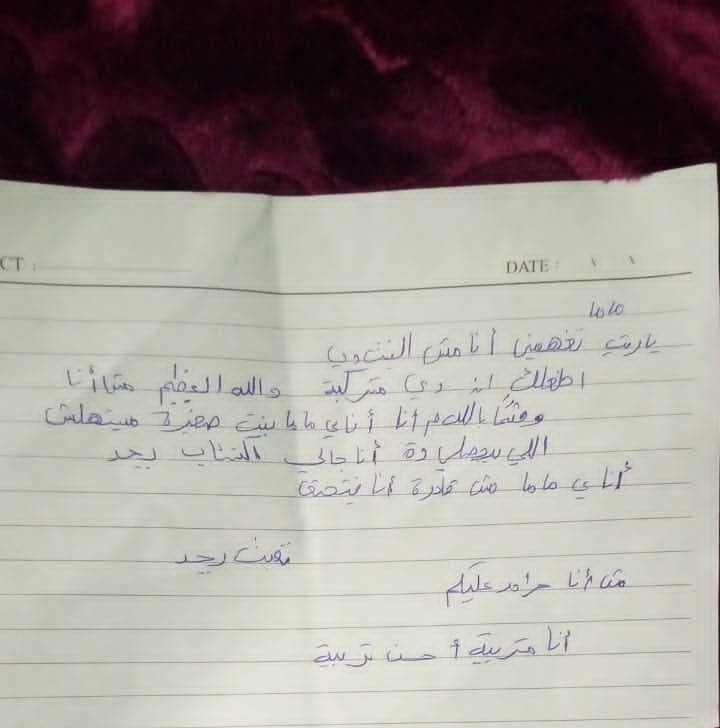 CT :
DATE : \ \
ماما
ياريت تفهمينى أنا مش البنت دي
الصور دي متركبة والله العظيم مش أنا
وقسمًا بالله م أنا أنا ي ماما بنت صغيرة مستهلش
اللي بيحصلي دة أنا جالي اكتئاب بجد
أنا ي ماما مش قادرة أنا بتخنق
تعبت بجد
مش أنا حرام عليكم
أنا متربية أحسن تربية